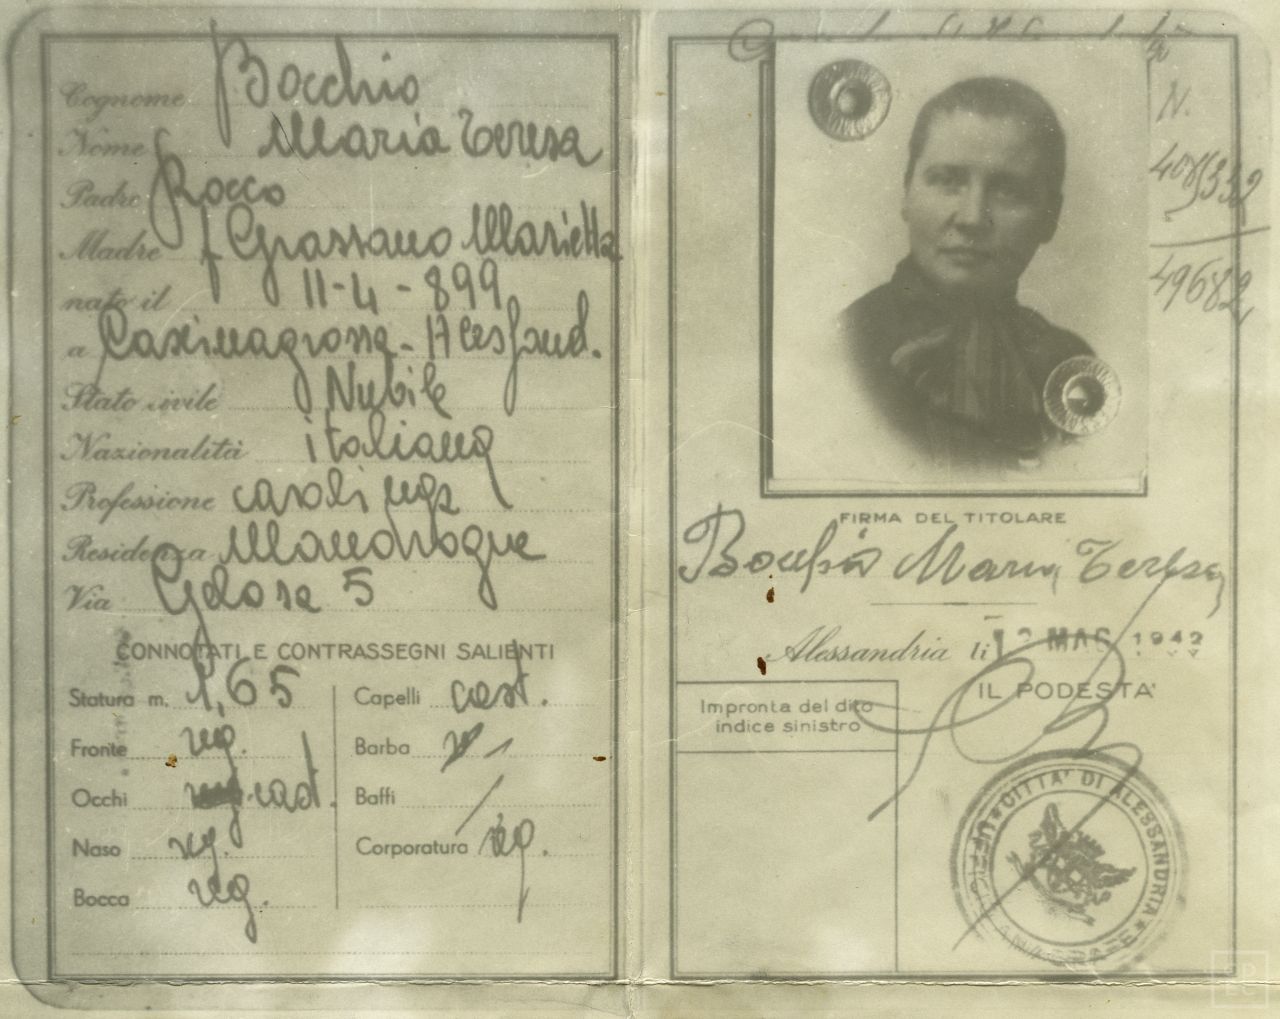 Cognome Bocchio
Nome Maria Teresa
Padre Rocco
Madre f Grassano Marietta
nato il 11-4-899
a Cascinagrossa - Alessand.
Stato civile Nubile
Nazionalità italiana
Professione casalinga
Residenza Mandrogne
Via Gelosa 5
CONNOTATI E CONTRASSEGNI SALIENTI
Statura m. 1,65
Fronte reg.
Occhi cast.
Naso reg.
Bocca reg.
Capelli cast.
Barba
Baffi /
Corporatura reg.
N.
49682
FIRMA DEL TITOLARE
Bocchio Maria Teresa
Alessandria li MAG 1942
IL PODESTA'
Impronta del dito
indice sinistro
CITTA' DI ALESSANDRIA